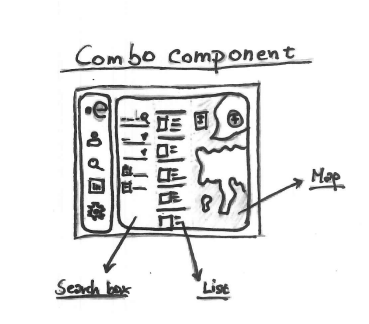 Combo component
Map
Search box
List